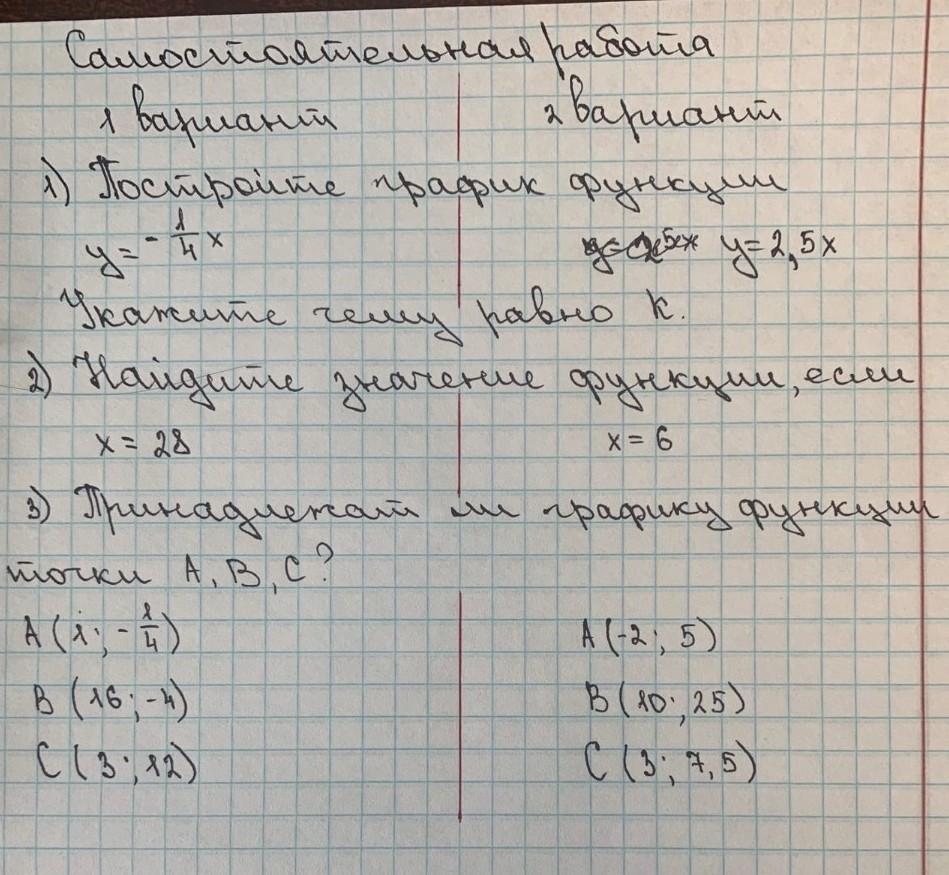 Самостоятельная работа
1 вариант 2 вариант
1) Постройте график функции
y = - 1/4 x y = 2,5x
Укажите чему равно k.
2) Найдите значение функции, если
x = 28 x = 6
3) Принадлежат ли графику функции
точки A, B, C?
A (1; - 1/4) A (-2; 5)
B (16; -4) B (10; 25)
C (3; 12) C (3; 7,5)